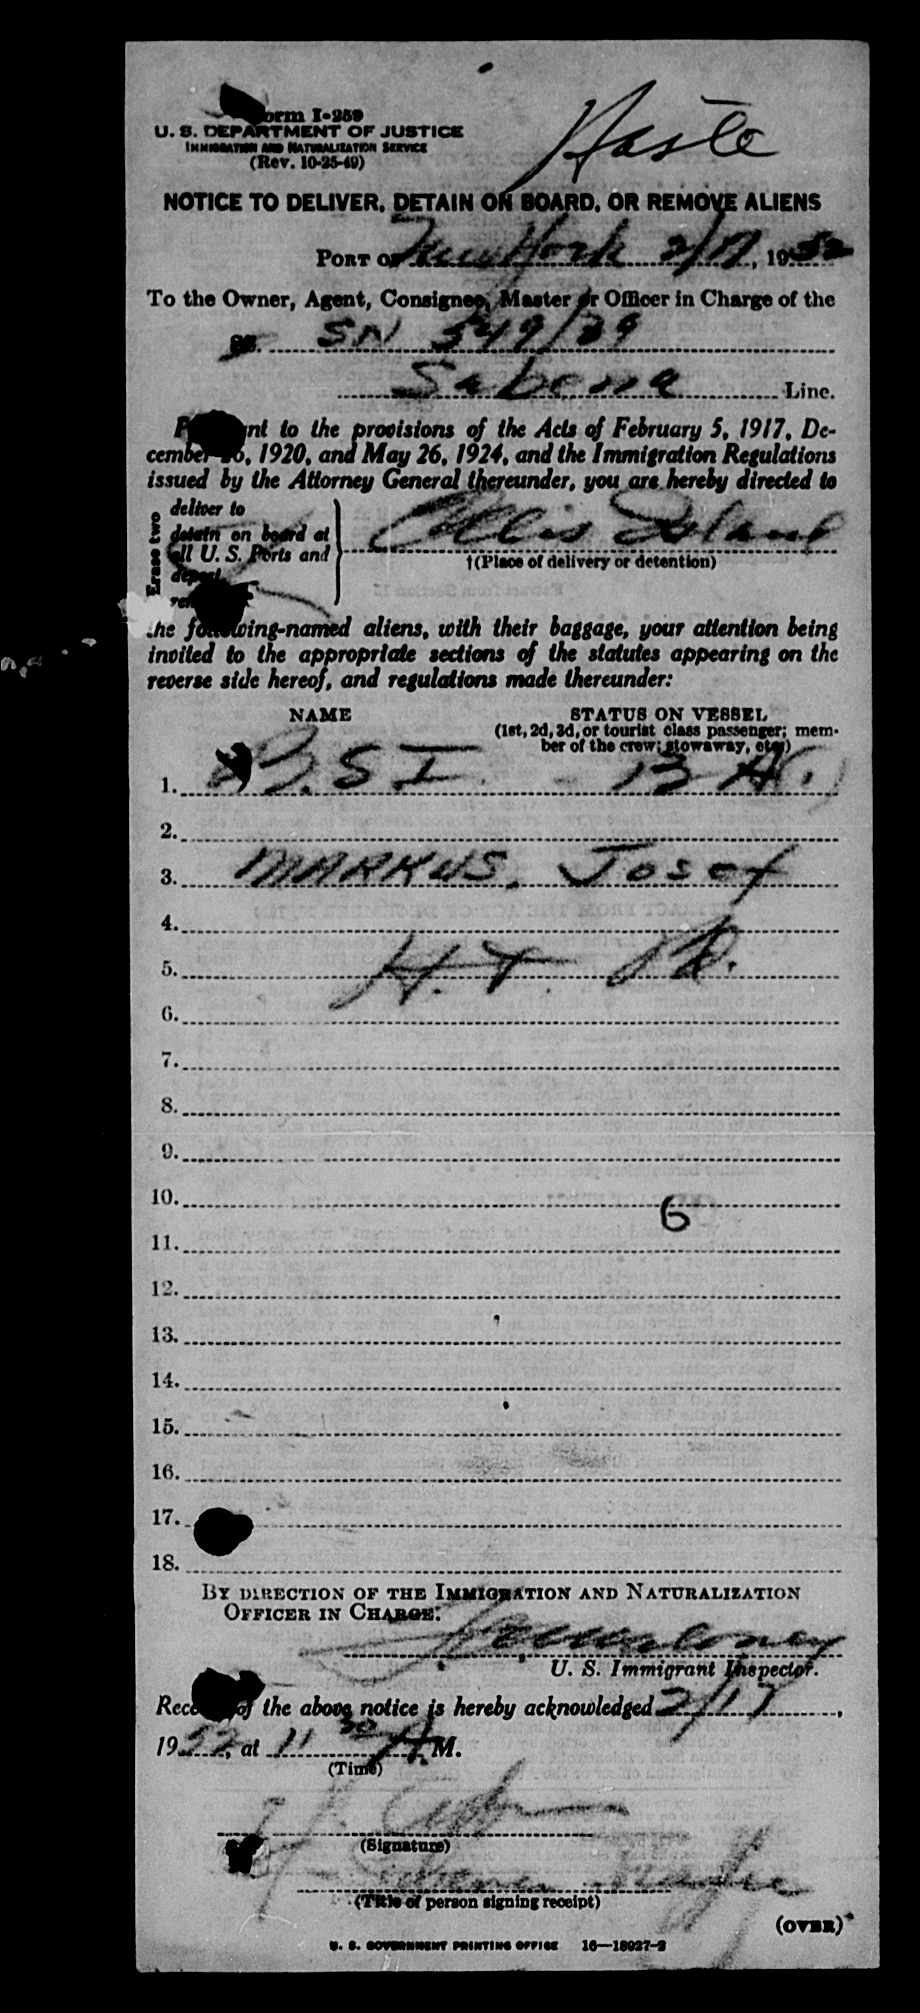 Form I-259
Haste
U. S. DEPARTMENT OF JUSTICE
IMMIGRATION AND NATURALIZATION SERVICE
(Rev. 10-25-49)
NOTICE TO DELIVER, DETAIN ON BOARD, OR REMOVE ALIENS
PORT OF New York 2/17, 1952
To the Owner, Agent, Consignee, Master or Officer in Charge of the
SS. SN 549/29
Sabena Line.
Pursuant to the provisions of the Acts of February 5, 1917, De-
cember 26, 1920, and May 26, 1924, and the Immigration Regulations
issued by the Attorney General thereunder, you are hereby directed to
Erase two
deliver to
detain on board at
all U. S. Ports and
deport
remove
Ellis Island
†(Place of delivery or detention)
the following-named aliens, with their baggage, your attention being
invited to the appropriate sections of the statutes appearing on the
reverse side hereof, and regulations made thereunder:
NAME STATUS ON VESSEL
(1st, 2d, 3d, or tourist class passenger; mem-
ber of the crew; stowaway, etc.)
1. B.S I
2.
3. MARKUS, Josef
4.
5.
6.
7.
8.
9.
10.
6
11.
12.
13.
14.
15.
16.
17.
18.
BY DIRECTION OF THE IMMIGRATION AND NATURALIZATION
OFFICER IN CHARGE:
U. S. Immigrant Inspector.
Receipt of the above notice is hereby acknowledged 2/17,
1952, at 11 30 A. M.
(Time)
(Signature)
Sabena
(Title of person signing receipt)
(OVER)
U. S. GOVERNMENT PRINTING OFFICE 16—18027-2